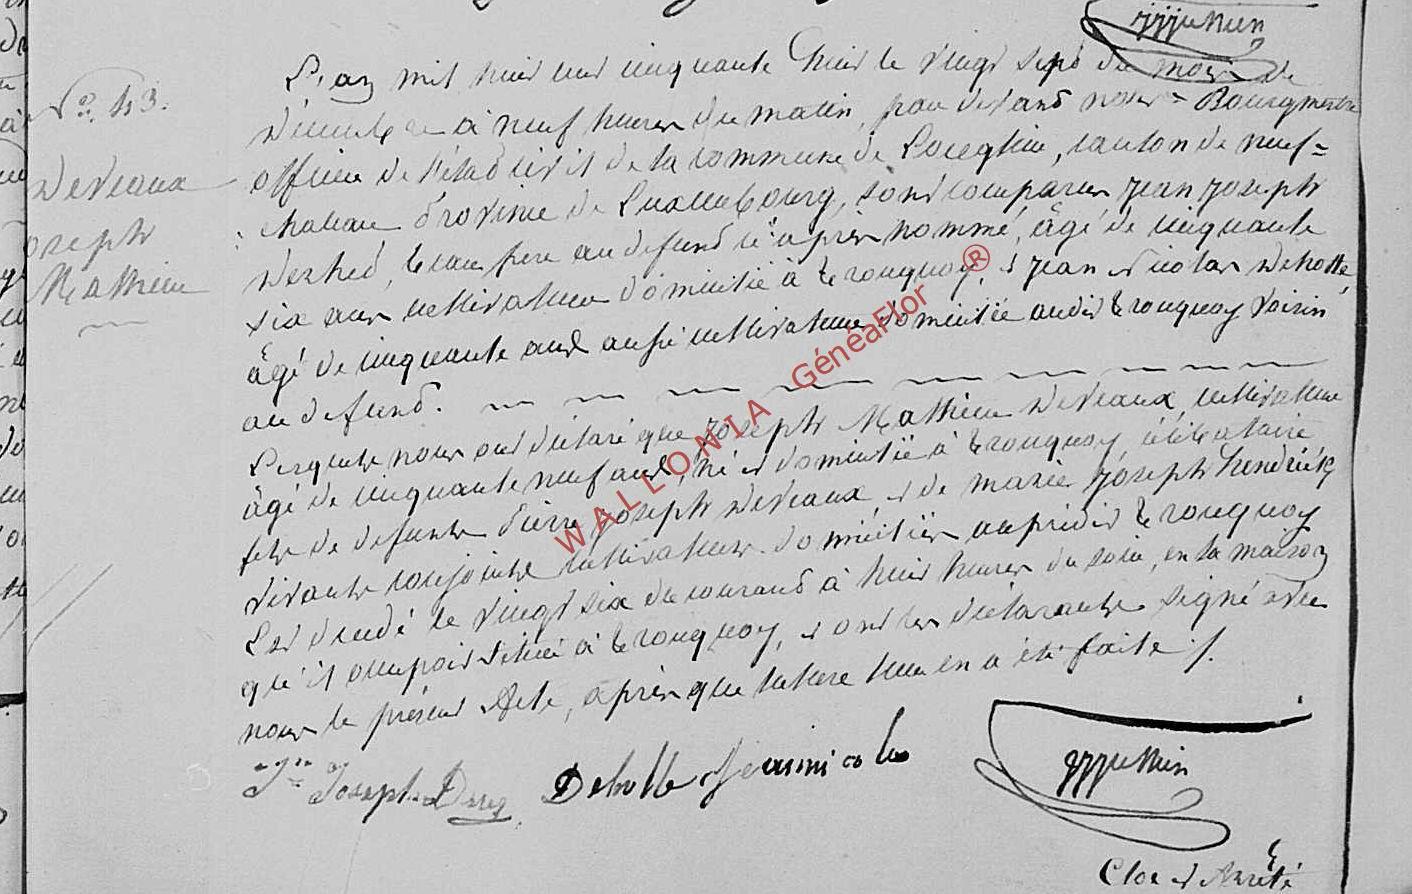 N°. 43.
Deveaux
Joseph
Mathieu
L'an mil huit cent cinquante huit le vingt sept du mois de
Décembre à neuf heures du matin, par devant nous Bourgmestre
officier de l'état civil de la commune de Longlier, canton de neuf=
chateau Province de Luxembourg, sont comparus Jean Joseph
beau frere au defunt ci après nommé, âgé de cinquante
six ans cultivateur domicilié à tronquoy, et Jean Nicolas Dehotte,
âgé de cinquante ans aussi cultivateur domicilié audit tronquoy voisin
au defunt.
Lesquels nous ont déclaré que Joseph Mathieu Deveaux, cultivateur
âgé de cinquante neuf ans, né et domicilié à tronquoy célibataire,
fils de defunts Pierre Joseph Deveaux et de marie Joseph hendrick
vivants conjoints cultivateurs domiciliés au prédit tronquoy
Est décédé le vingt six du courant à huit heures du soir, en la maison
qu'il occupait située à tronquoy, et ont les déclarants signé avec
nous le présent Acte, après que lecture leur en a été faite /.
Jn Joseph
Dehotte Jean nicolas
Clos et Arrêté
WALLONIA GénéaFlor®